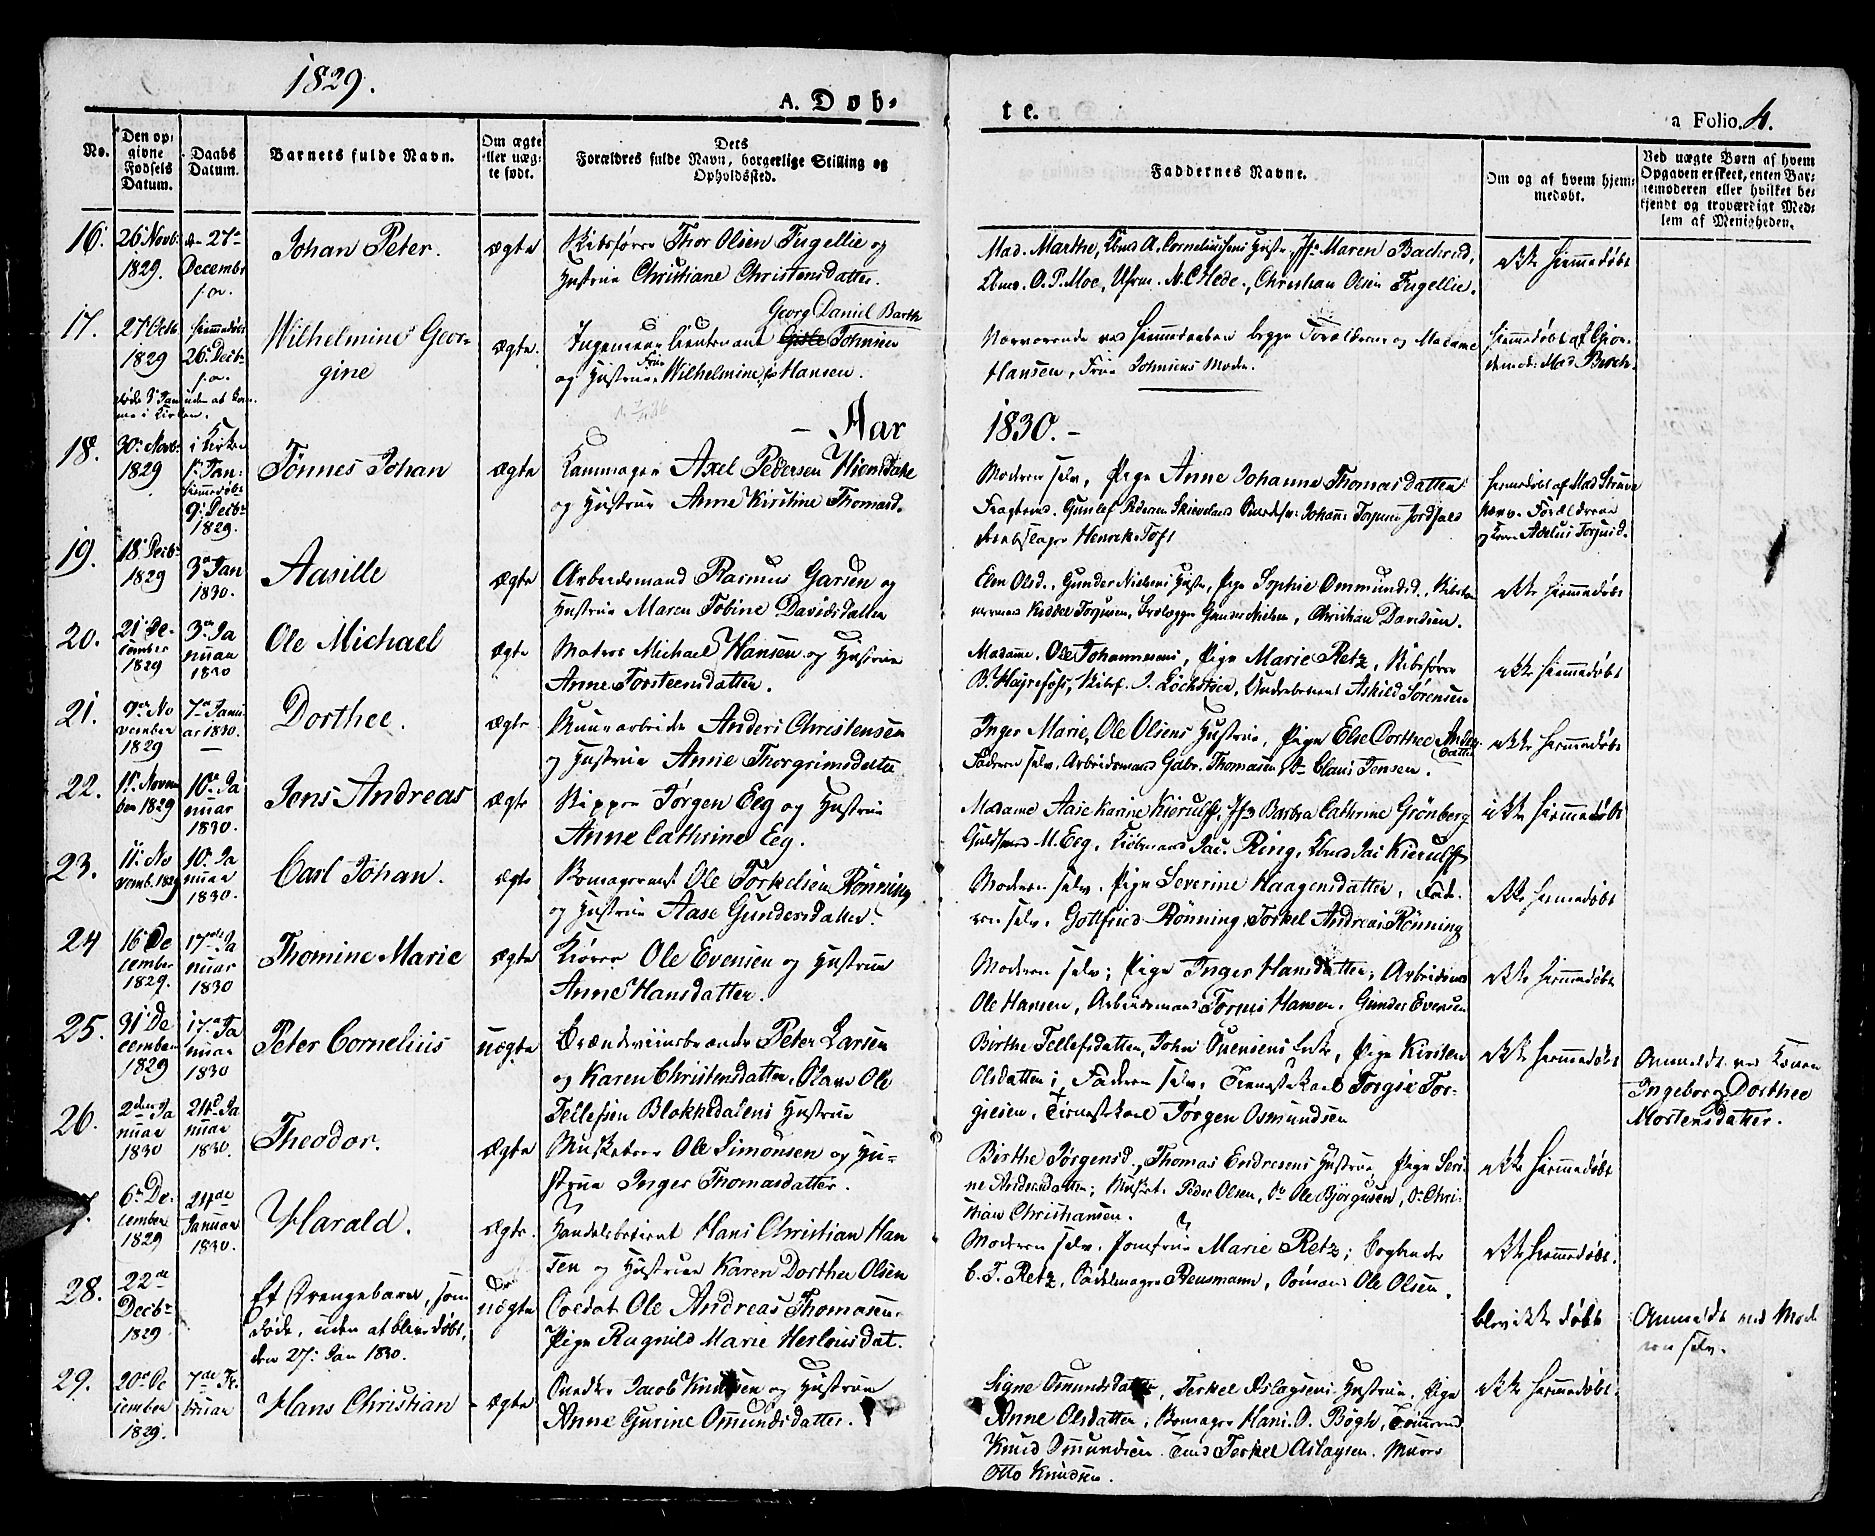 1829.
A. Døb-
te.
a Folio. 4.
No.
Den op-
givne
Fødsels
Datum.
Daabs
Datum.
Barnets fulde Navn.
Om ægte
eller uæg-
te født.
Dets
Forældres fulde Navn, borgerlige Stilling og
Opholdssted.
Faddernes Navne.
Om og af hvem hjem-
medøbt.
Ved uægte Børn af hvem
Opgaven er skeet, enten Bar-
nemoderen eller hvilket be-
kjendt og troværdigt Med-
lem af Menigheden.
16.
26 Novb.
1829.
27
Decembr
Johan Peter.
ægte
Skibsfører Thor Olsen Fugellie og
Hustrue Christiane Christensdatter.
Mad. Marthe, A. Corneliussens Hustr. Jfr Maren Bachrud,
O. P. Moe, N. C. Hede., Christian Olsen Fugellie.
ikke hiemmedøbt
17.
27 Octb
1829
døde 3 Jan
hiemmedøbt
26 Decb.
uden at kom-
me i Kirken.
Wilhelmine Geor-
gine
ægte.
Georg Daniel Barth
Ingenieur Lieutenant Johnsen
og Hustrue Frue Wilhelmine Hansen.
Nærværende ved Hiemmedaaben begge Forældrene og Madame
Hansen, Frue Johnsens Moder.
hiemmedøbt af Gjor-
demod: Mad Birch.
- Aar
1830. -
18.
30 Novb.
1829
i Kirken
1 Jan.
hiemmedøbt
9 Decbr
1829.
Tønnes Johan
ægte
Kammager Axel Pedersen Hiemdahl
og Hustrue Anne Kirstine Thomasd.
Moderen selv, Pige Anne Johanne Thomasdatter
Gunlef Pedersen Johan Torjusen
Henrik Toft
hiemmedøbt af Mad Struve
nærv. Forældrene
19.
18 Decbr
1829
3 Jan
1830.
Aasille
ægte
Arbeidsmand Rasmus Garsen og
Hustrue Maren Tobine Davidsdatter
Elen Olsd., Gunder Nielsens Hustr., Pige Sophie Ommundsd.,
Torjusen, Gunder Nielsen, Christian Davidsen.
ikke hiemmedøbt
20.
21 De-
cember
1829
3 Ja
nuar
1830
Ole Michael
ægte
Matros Michael Hansen og Hustrue
Anne Torsteensdatter.
Madame. Ole Johannesens, Pige Marie Retz, Skibsfører
B. Høyrefoft, Skibsf. J. Lochstøer, Underbetient Askild Sørensen
ikke hiemmedøbt
21.
9 No
vember
1829
7 Janu
ar 1830.
Dorthee.
ægte
Anders Christensen
og Hustrue Anne Thorgrimsdatter
Inger Marie, Ole Olsens Hustrue, Pige Else Dorthee Anders
datter
Faderen selv, Arbeidsmand Gabr. Thomasen, Do Claus Jensen.
ikke hiemmedøbt
22.
11 Novem
ber 1829
10 Ja
nuar
1830.
Jens Andreas
ægte
Skipper Jørgen Eeg og Hustrue
Anne Cathrine Eeg.
Madame Aase Karine Kierulff, Jfr Barbra Cathrine Grönberg
Guldsmed M. Eeg, Kiøbmand Jac. Ring, Kbmd Jac Kierulff
ikke hiemmedøbt
23.
11 No
vemb. 1829
10 Ja
nuar
1830.
Carl Johan.
ægte
Ole Torkelsen Rönning
og Hustrue Aase Gundersdatter.
Moderen selv. Pige Severine Haagensdatter, Fade-
ren selv. Gottfried Rönning, Torkel Andreas Rönning
ikke hiemmedøbt
24
16 De
cember
1829.
17de Ja
nuar
1830
Thomine Marie
ægte
Kiører Ole Evensen og Hustrue
Anne Hansdatter.
Moderen selv; Pige Inger Hansdatter; Arbeidsmd
Ole Hansen, Arbeidsmand Torjus Hansen. Gunder Evensen
ikke hiemmedøbt
25.
31 De
cember
1829
17 Ja
nuar
1830
Peter Cornelius
uægte
Brændeviinsbrænder Peter Larsen
og Karen Christensdatter, Slave Ole
Tellefsen Blokkedalens Hustrue
Birthe Tellefsdatter, John Svensens Enke, Pige Kirsten
Olsdatter, Faderen selv. Torgiæ Tor-
giesen, Jørgen Osmundsen
ikke hiemmedøbt
Anmeldt ved Konen
Ingeborg Dorthee
Mortensdatter.
26.
2den Ja
nuar
1830
24 Ja
nuar
1830.
Theodor.
ægte
Musketeer Ole Simonsen og Hu-
strue Inger Thomasdatter.
Birthe Jørgensd., Thomas Endresens Hustrue, Pige Seri-
ne Andersdatter; Musket. Peder Olsen, Do Ole Björgusen, Do Chri-
stian Christiansen.
ikke hiemmedøbt
7.
6 De-
cember
1829
24de
Januar
1830.
Harald.
ægte.
Handelsbetient Hans Christian Han
sen og Hustrue Karen Dorthea Olsen
Moderen selv. Jomfrue Marie Retz; Bogbinder
C. F. Retz, Sadelmager Rensmann, Sømand Ole Olsen.
ikke hiemmedøbt.
28.
22de
Decbr
1829
Et Drengebarn, som
døde, uden at blive døbt,
den 27: Jan 1830.
uægte
Soldat Ole Andreas Thomasen.
Pige Ragnild Marie Herlousdat.
blev ikke døbt
Anmeldt ved Mode
ren selv.
29.
20 De
cember
1829.
7de Fe-
bruar
Hans Christian
ægte
Snedker Jacob Knudsen og Hustrue
Anne Gurine Omundsdatter.
Signe Omundsdatter, Terkel Aslagsens Hustrue, Pige
Anne Olsdatter, Hans. O. Bøgh, Tømmermd
Knud Omundsen. Terkel Aslagsen. Murer
Otto Knudsen.
ikke hiemmedøbt.